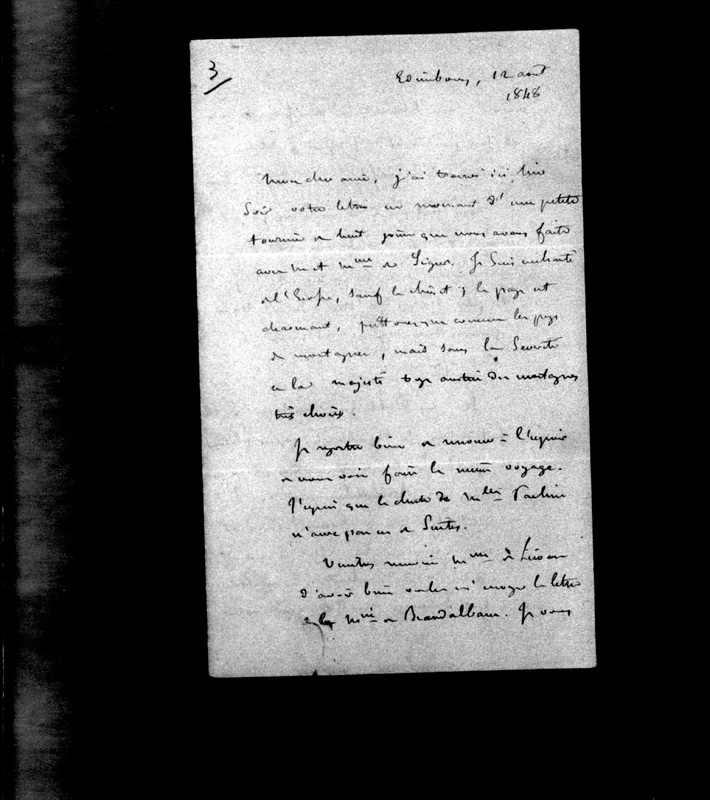 3
Edimbourg, 12 aout
1848
Mon cher ami, j'ai trouvé ici hier
soir votre lettre en revenant d'une petite
tournée de huit jours que nous avons faite
avec M et Mme de Ligne. Je suis enchanté
de l'Ecosse, sauf le climat ; le pays est
charmant, pittoresque comme les pays
de montagnes, mais sans la
et la majesté trop austère des montagnes
Je regrette bien de renoncer à l'espoir
de vous voir faire le même voyage.
J'espère que la chute de Mlle Pauline
n'aura pas eu de suites.
Veuillez remercier Mme de
d'avoir bien voulu m'envoyer la lettre
de Mme de Beaudalbane. Je vous